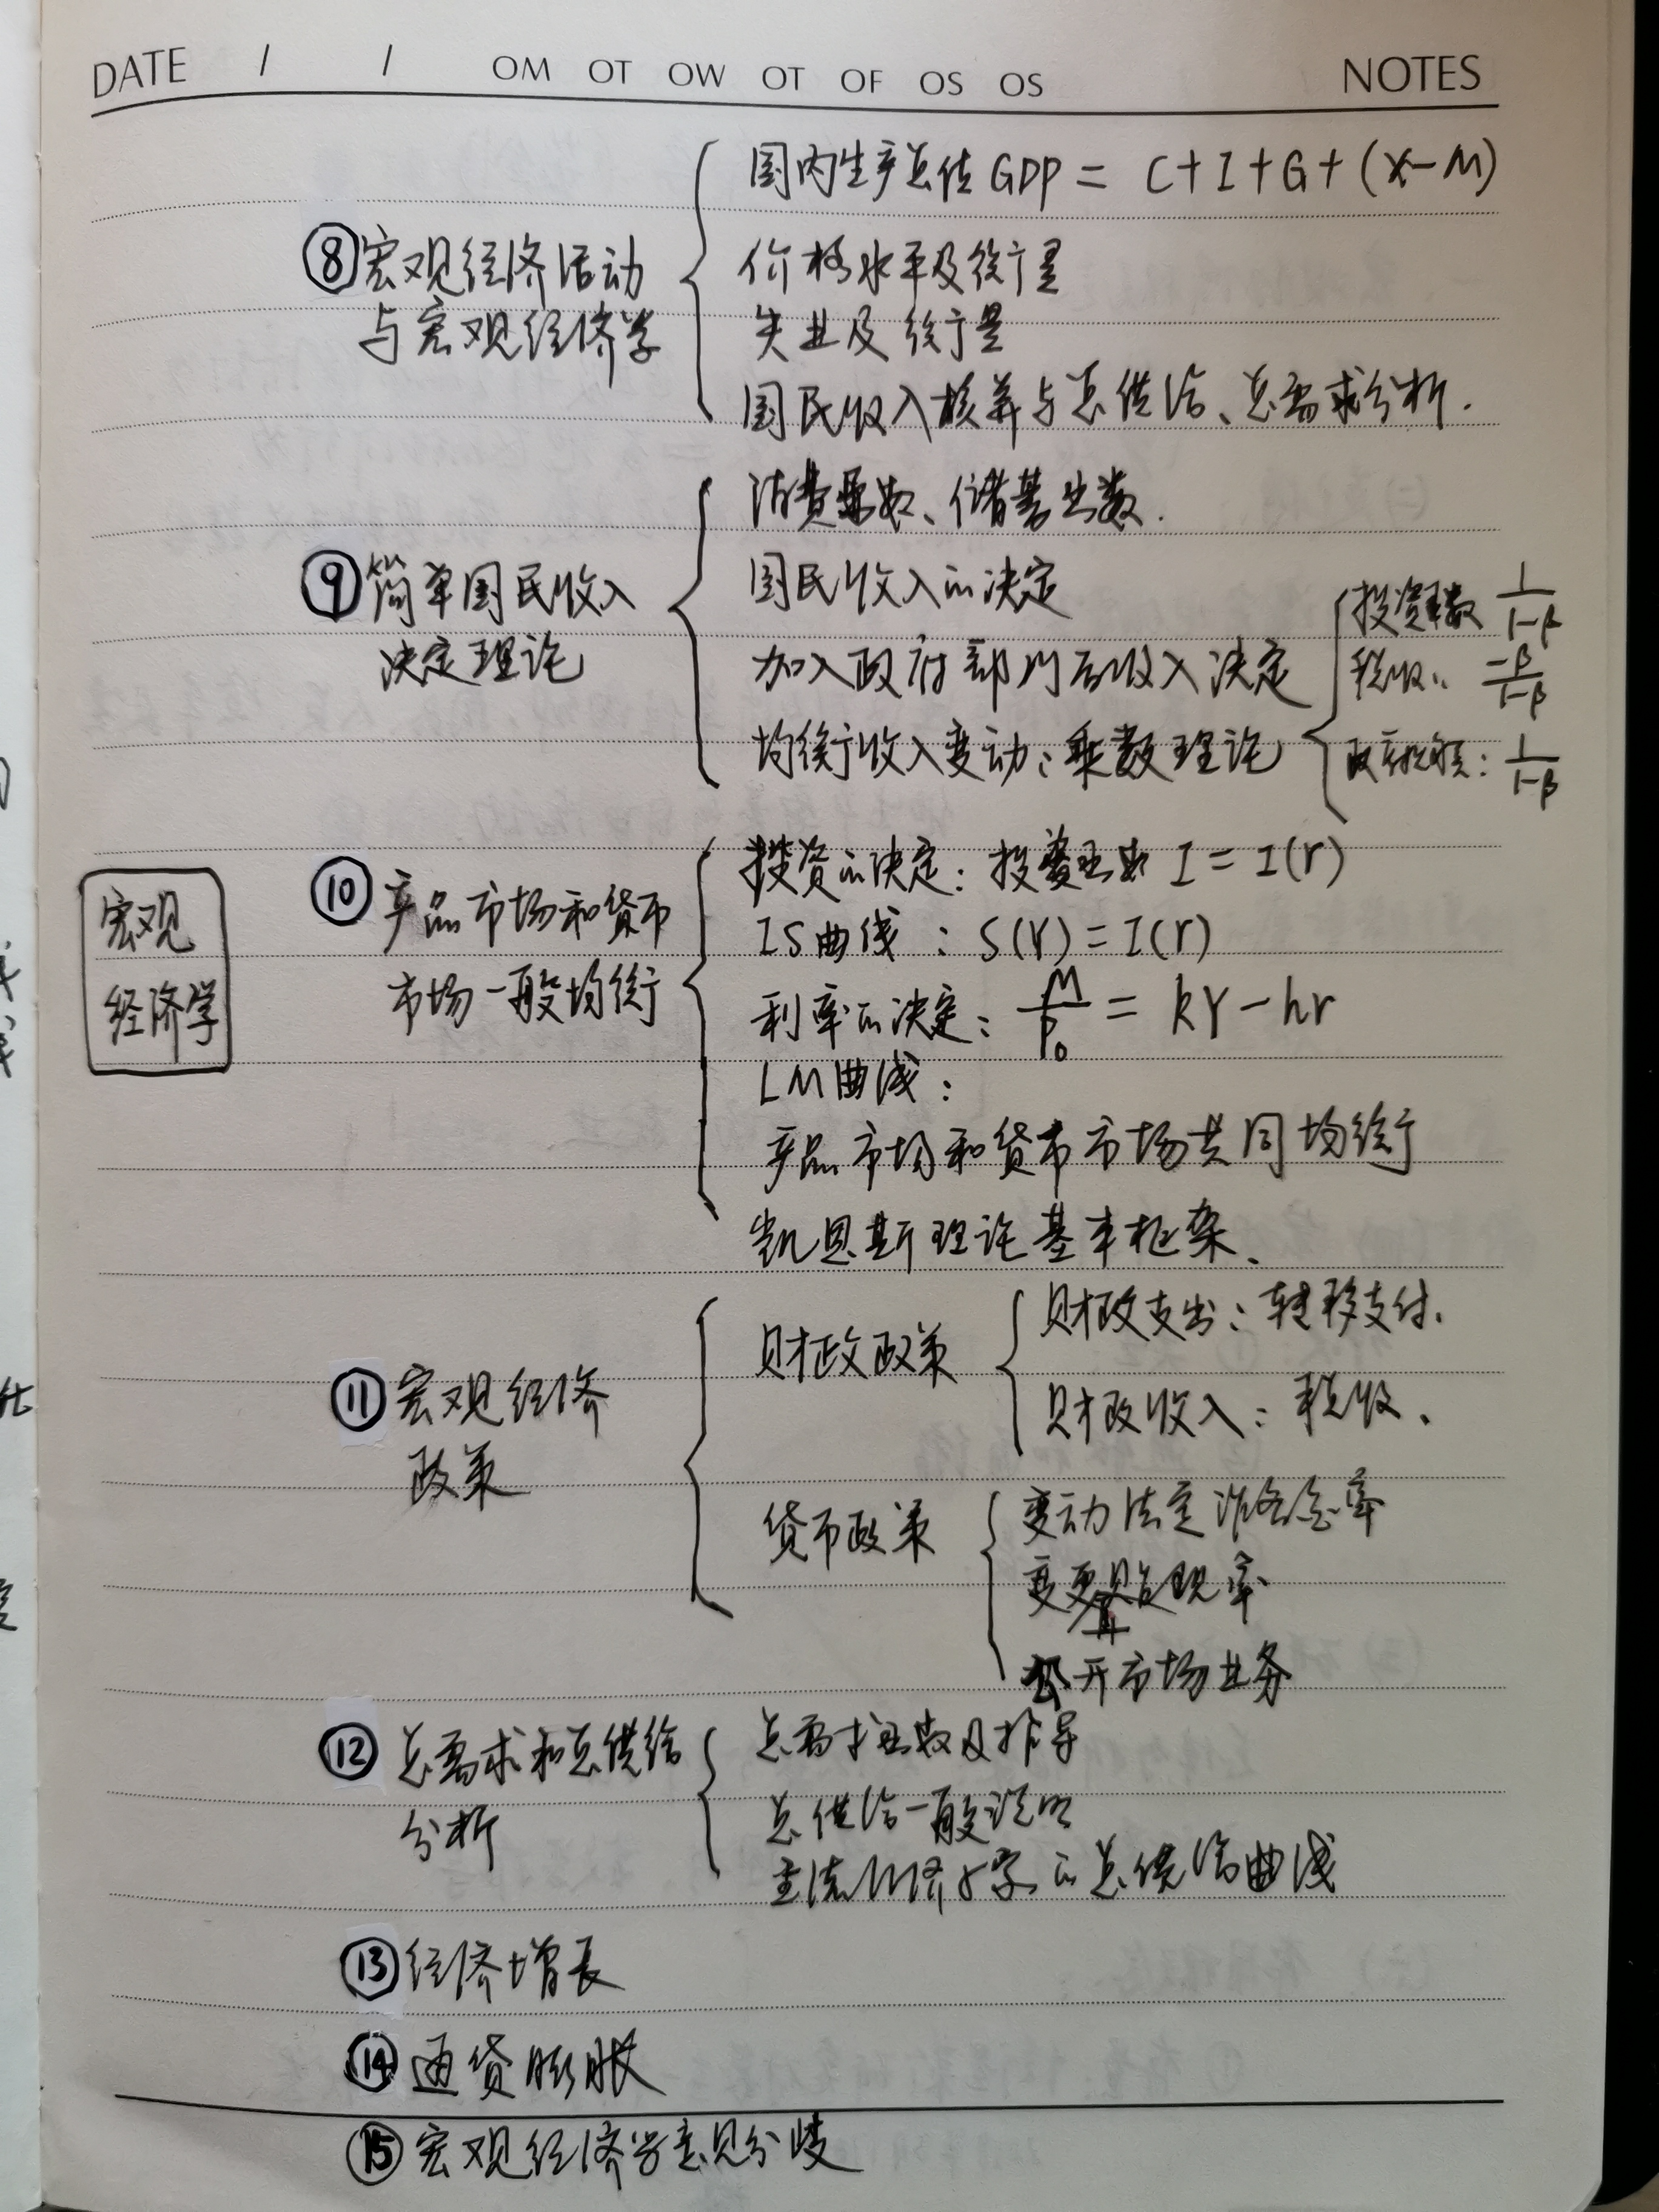 DATE / / OM OT OW OT OF OS OS NOTES
国内生产总值 GDP = C+I+G+(X-M)
⑧宏观经济活动
与宏观经济学
价格水平及衡量
失业及衡量
国民收入核算与总供给、总需求分析.
消费函数、储蓄函数.
⑨简单国民收入
决定理论
国民收入的决定
加入政府部门后收入决定
均衡收入变动:乘数理论
投资乘数 1/1-β
税收〃 -β/1-β
政府购买: 1/1-β
宏观
经济学
⑩产品市场和货币
市场一般均衡
投资的决定: 投资函数 I = I(r)
IS曲线 : S(Y) = I(r)
利率的决定: M/P₀ = kY - hr
LM曲线:
产品市场和货币市场共同均衡
凯恩斯理论基本框架、
⑪宏观经济
政策
财政政策
财政支出: 转移支付.
财政收入: 税收、
货币政策
变动法定准备金率
变更贴现率
公开市场业务
⑫总需求和总供给
分析
总需求函数及推导
总供给一般说明
主流经济学的总供给曲线
⑬经济增长
⑭通货膨胀
⑮宏观经济学意见分歧